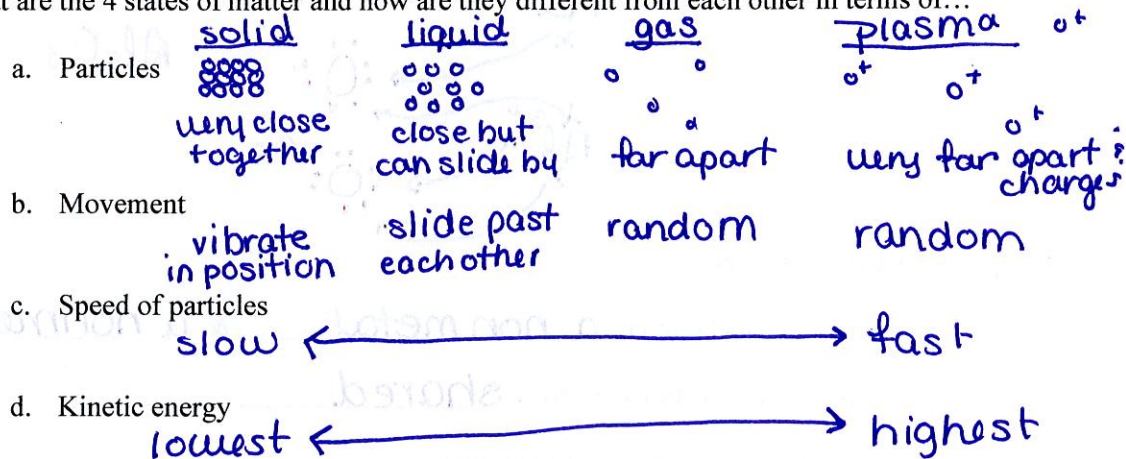 are the 4 states of matter and how are they different from each other in terms of…
solid liquid gas plasma
a. Particles
very close together
close but can slide by
far apart
very far apart & charges
b. Movement
vibrate in position
slide past each other
random
random
c. Speed of particles
slow fast
d. Kinetic energy
lowest highest